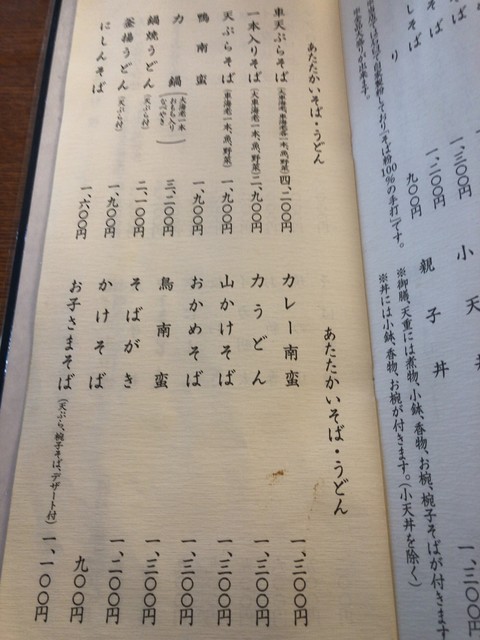 り
一、三〇〇円
一、二〇〇円
九〇〇円
「そば粉100%の手打」です。
親子丼
※御膳、天重には煮物、小鉢、香物、お椀、椀子そばが付きます
※丼には小鉢、香物、お椀が付きます。(小天丼を除く)
あたたかいそば・うどん
車天ぷらそば(大車海老、車海老各一本、魚、野菜)四、二〇〇円
一本入りそば(大車海老一本、魚、野菜)二、九〇〇円
天ぷらそば(車海老一本、魚、野菜)一、九〇〇円
鴨南蛮 一、九〇〇円
力鍋(大海老一本 おもち入り なべやき)三、二〇〇円
鍋焼うどん(天ぷら付)二、一〇〇円
釜揚うどん(天ぷら付)一、九〇〇円
にしんそば 一、六〇〇円
あたたかいそば・うどん
カレー南蛮 一、三〇〇円
力うどん 一、三〇〇円
山かけそば 一、三〇〇円
おかめそば 一、三〇〇円
鳥南蛮 一、三〇〇円
そばがき 一、二〇〇円
かけそば 九〇〇円
お子さまそば(天ぷら、椀子そば、デザート付)一、一〇〇円